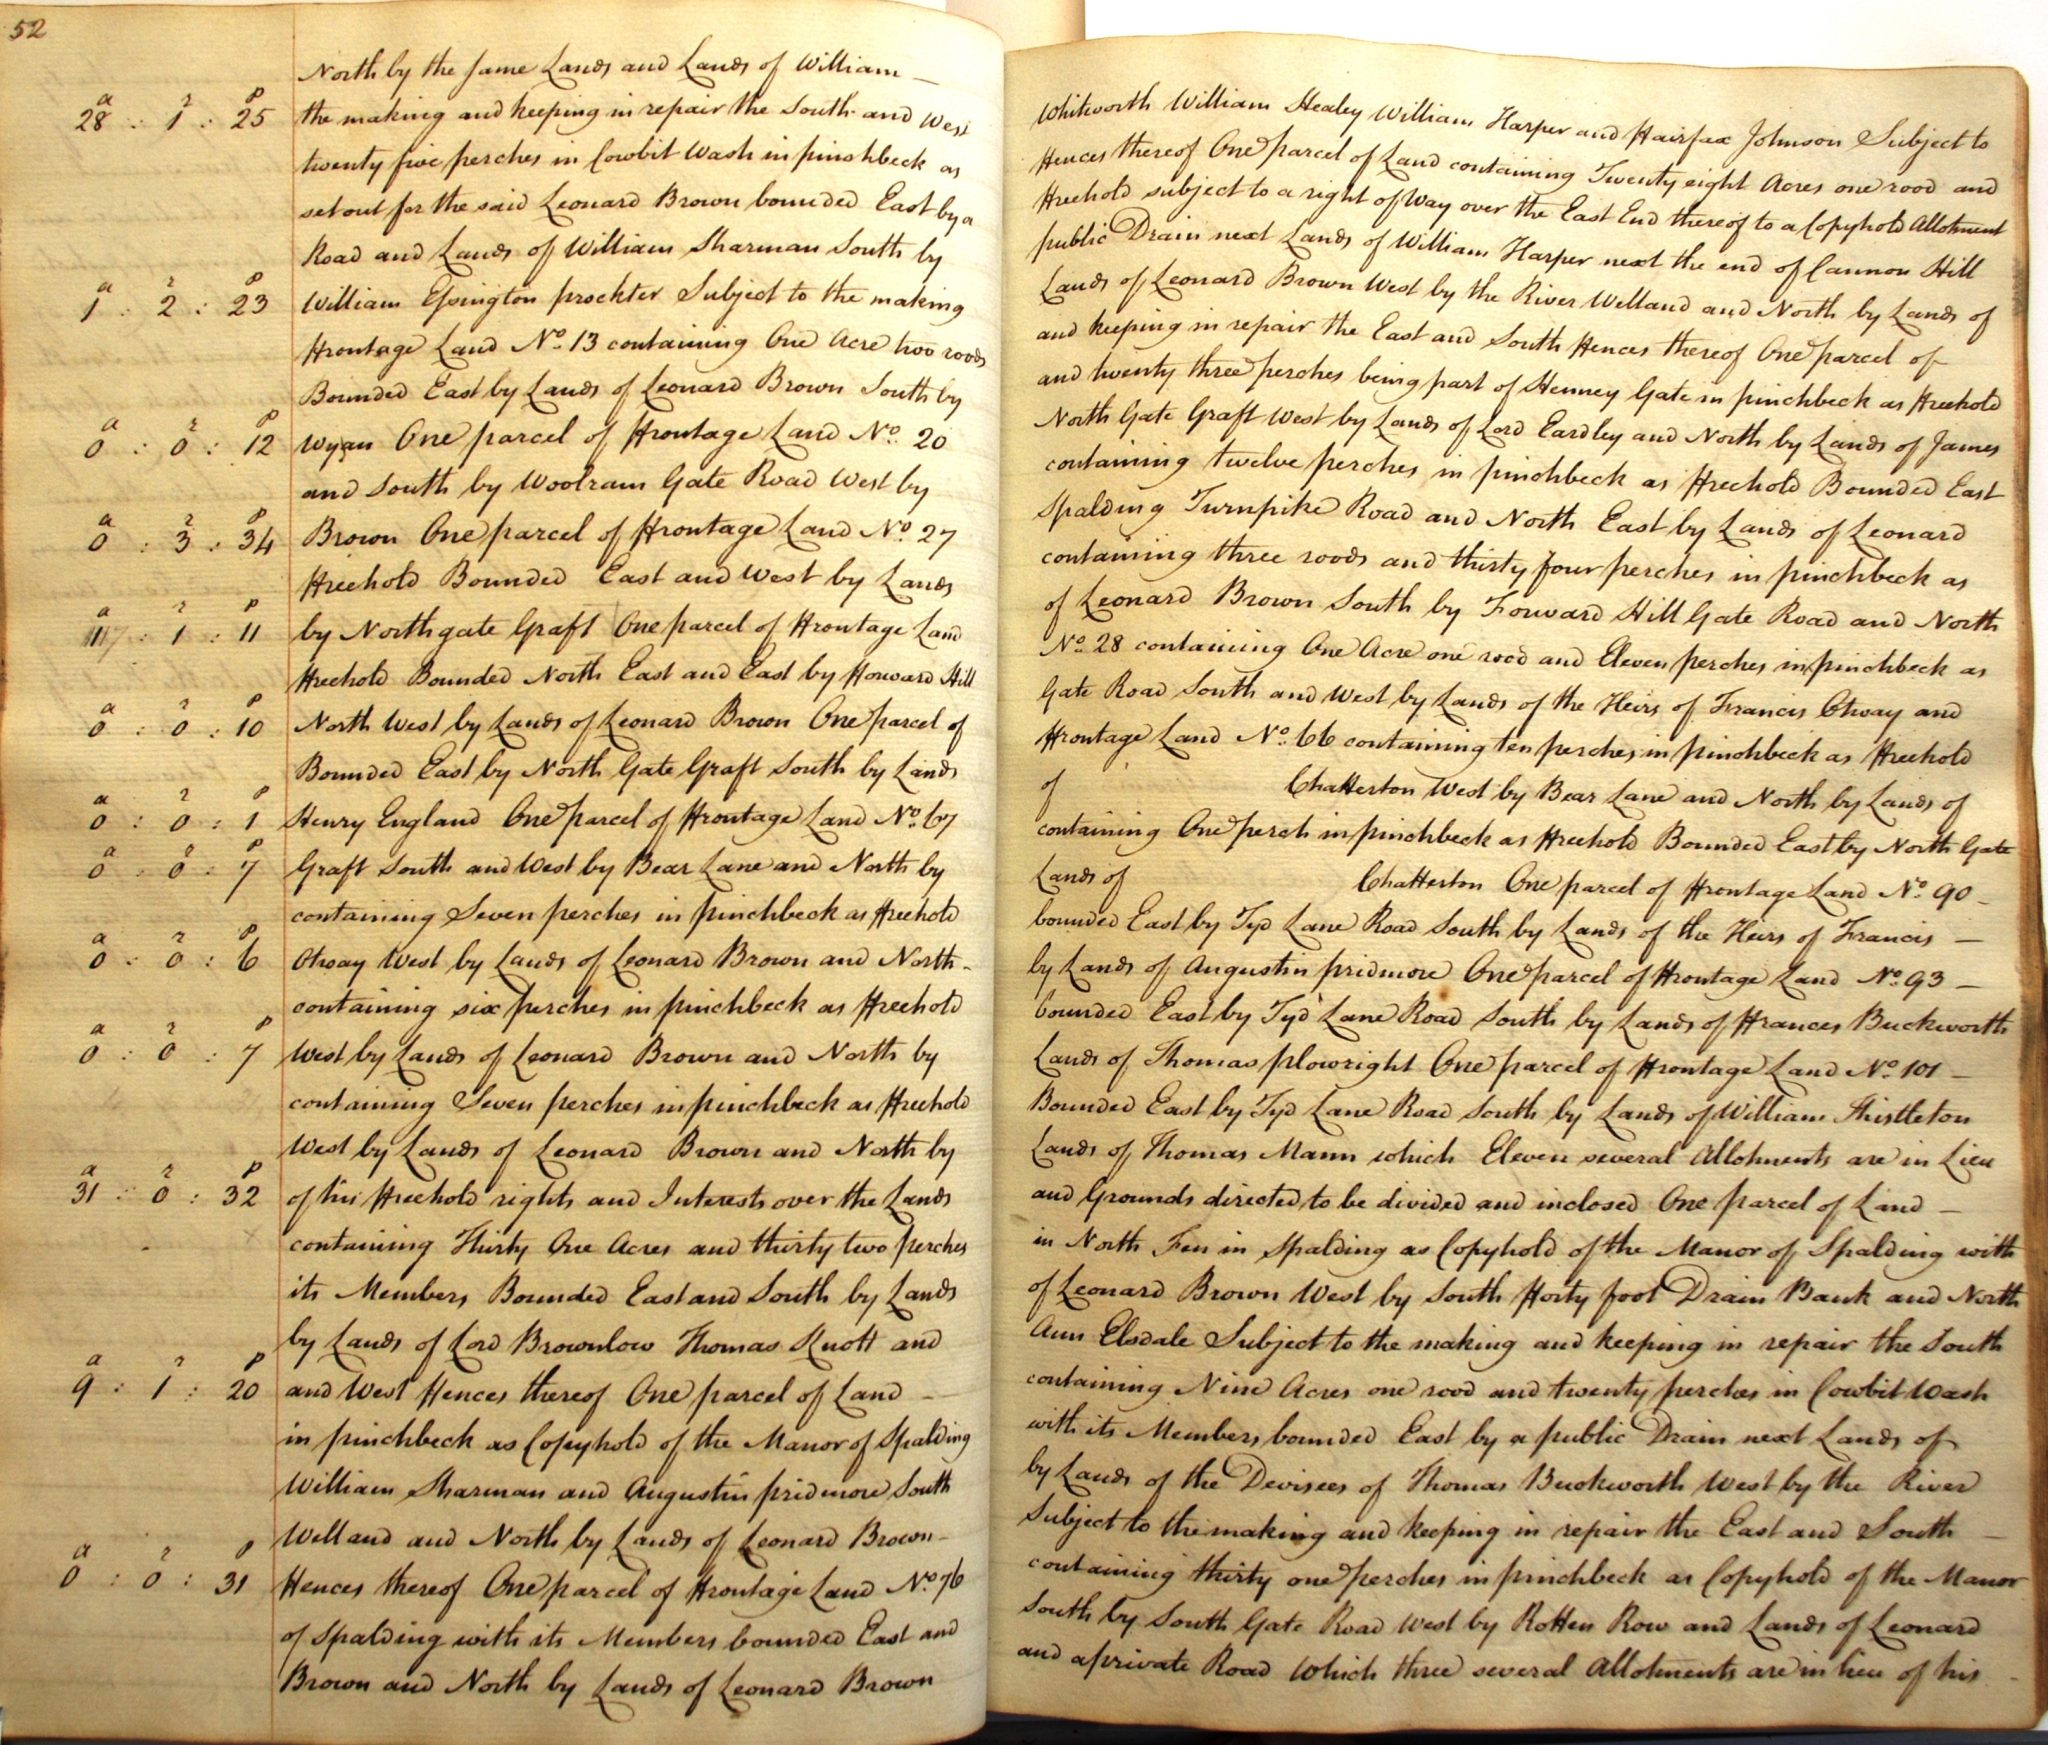 52
North by the same Lands and Lands of William — Whitworth William Healey William Harper and Fairfax Johnson Subject to
a r p
28 : 1 : 25 the making and keeping in repair the South and West Fences thereof One parcel of Land containing Twenty eight Acres one rood and
twenty five perches in Cowbit Wash in pinchbeck as Freehold subject to a right of Way over the East End thereof to a Copyhold Allotment
set out for the said Leonard Brown bounded East by a public Drain next Lands of William Harper next the end of Cannon Hill
Road and Lands of William Sharman South by Lands of Leonard Brown West by the River Welland and North by Lands of
a r p
1 : 2 : 23 William Essington prockter Subject to the making and keeping in repair the East and South Fences thereof One parcel of
Frontage Land No. 13 containing One Acre two roods and twenty three perches being part of Henney Gate in pinchbeck as Freehold
Bounded East by Lands of Leonard Brown South by North Gate Graft West by Lands of Lord Eardley and North by Lands of James
a r p
0 : 0 : 12 Wyan One parcel of Frontage Land No. 20 containing twelve perches in pinchbeck as Freehold Bounded East
and South by Woolram Gate Road West by Spalding Turnpike Road and North East by Lands of Leonard
a r p
0 : 3 : 34 Brown One parcel of Frontage Land No. 27 containing three roods and thirty four perches in pinchbeck as
Freehold Bounded East and West by Lands of Leonard Brown South by Forward Hill Gate Road and North
a r p
: 1 : 11 by Northgate Graft One parcel of Frontage Land No. 28 containing One Acre one rood and Eleven perches in pinchbeck as
Freehold Bounded North East and East by Forward Hill Gate Road South and West by Lands of the Heirs of Francis Otway and
a r p
0 : 0 : 10 North West by Lands of Leonard Brown One parcel of Frontage Land No. 66 containing ten perches in pinchbeck as Freehold
Bounded East by North Gate Graft South by Lands of Chatterton West by Bear Lane and North by Lands of
a r p
0 : 0 : 1 Henry England One parcel of Frontage Land No. 67 containing One perch in pinchbeck as Freehold Bounded East by North Gate
a r p
0 : 0 : 7 Graft South and West by Bear Lane and North by Lands of Chatterton One parcel of Frontage Land No. 90 —
containing Seven perches in pinchbeck as Freehold bounded East by Tyd Lane Road South by Lands of the Heirs of Francis —
a r p
0 : 0 : 6 Otway West by Lands of Leonard Brown and North — by Lands of Augustin pridmore One parcel of Frontage Land No. 93 —
containing six perches in pinchbeck as Freehold bounded East by Tyd Lane Road South by Lands of Frances Buckworth
a r p
0 : 0 : 7 West by Lands of Leonard Brown and North by Lands of Thomas plowright One parcel of Frontage Land No. 101 —
containing Seven perches in pinchbeck as Freehold Bounded East by Tyd Lane Road South by Lands of William Thistleton
West by Lands of Leonard Brown and North by Lands of Thomas Mann which Eleven several Allotments are in Lieu
a r p
31 : 0 : 32 of his Freehold rights and Interests over the Lands and Grounds directed to be divided and inclosed One parcel of Land —
containing Thirty One Acres and thirty two perches in North Fen in Spalding as Copyhold of the Manor of Spalding with
its Members Bounded East and South by Lands of Leonard Brown West by South Forty foot Drain Bank and North
by Lands of Lord Brownlow Thomas Knott and Ann Elsdale Subject to the making and keeping in repair the South
a r p
9 : 1 : 20 and West Fences thereof One parcel of Land — containing Nine Acres one rood and twenty perches in Cowbit Wash
in pinchbeck as Copyhold of the Manor of Spalding with its Members bounded East by a public Drain next Lands of
William Sharman and Augustin pridmore South by Lands of the Devisees of Thomas Buckworth West by the River
Welland and North by Lands of Leonard Brown — Subject to the making and keeping in repair the East and South —
a r p
0 : 0 : 31 Fences thereof One parcel of Frontage Land No. 76 containing thirty one perches in pinchbeck as Copyhold of the Manor
of Spalding with its Members bounded East and South by South Gate Road West by Rotten Row and Lands of Leonard
Brown and North by Lands of Leonard Brown and a private Road which three several Allotments are in lieu of his